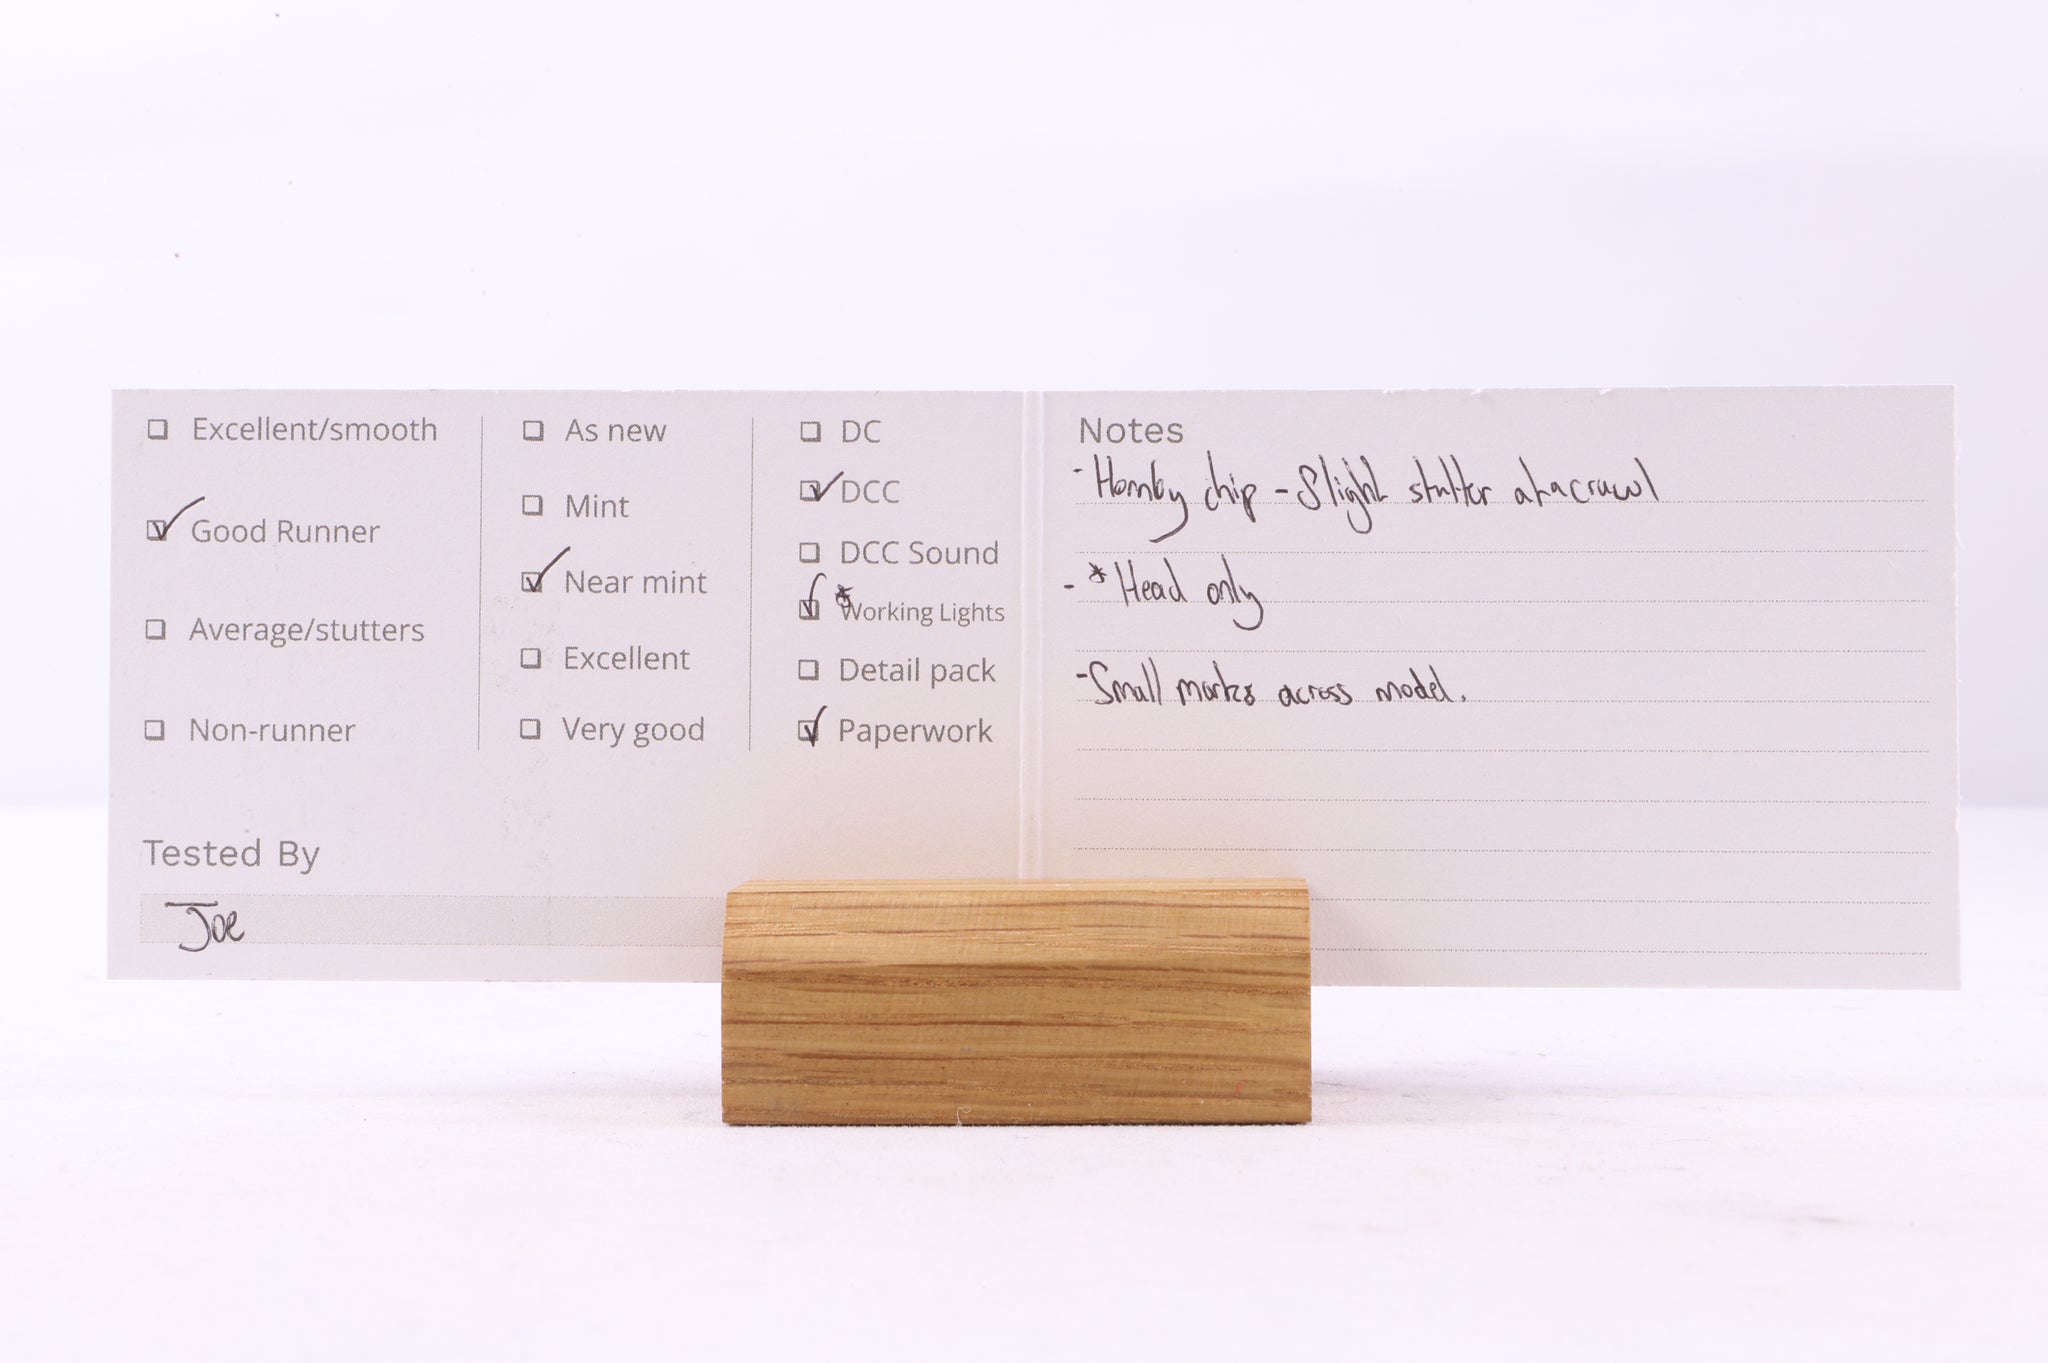 Excellent/smooth
Good Runner
Average/stutters
Non-runner
As new
Mint
Near mint
Excellent
Very good
DC
DCC
DCC Sound
* Working Lights
Detail pack
Paperwork
Tested By
Joe
Notes
- Hornby chip - Slight stutter at a crawl
- * Head only
- Small marks across model.